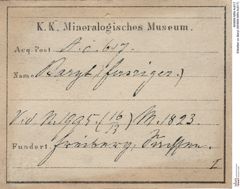 K. K. Mineralogisches Museum.
Acq. Post A.c. 647.
Name: Baryt (fasriger.)
V. d. N. 1995. (16/3) M. 1823.
Fundort: Freiberg, Sachsen.
I